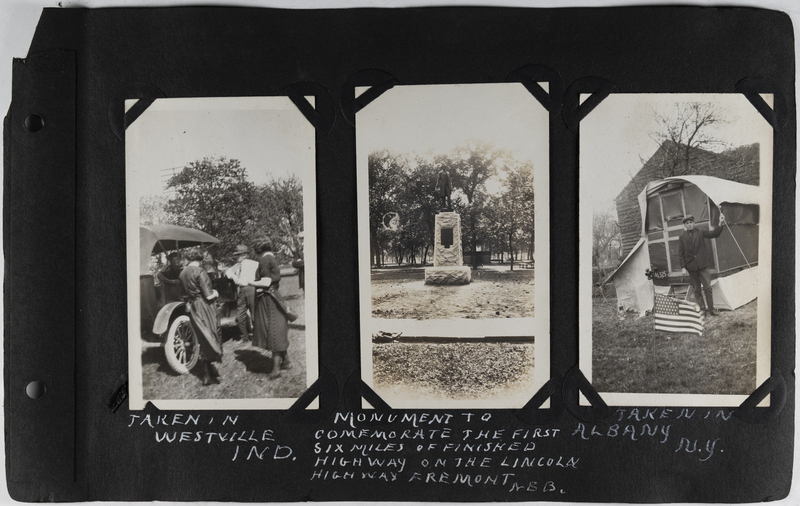 TAKEN IN
WESTVILLE
IND.
MONUMENT TO
COMEMORATE THE FIRST
SIX MILES OF FINISHED
HIGHWAY ON THE LINCOLN
HIGHWAY FREMONT
NEB.
TAKEN IN
ALBANY
N.Y.